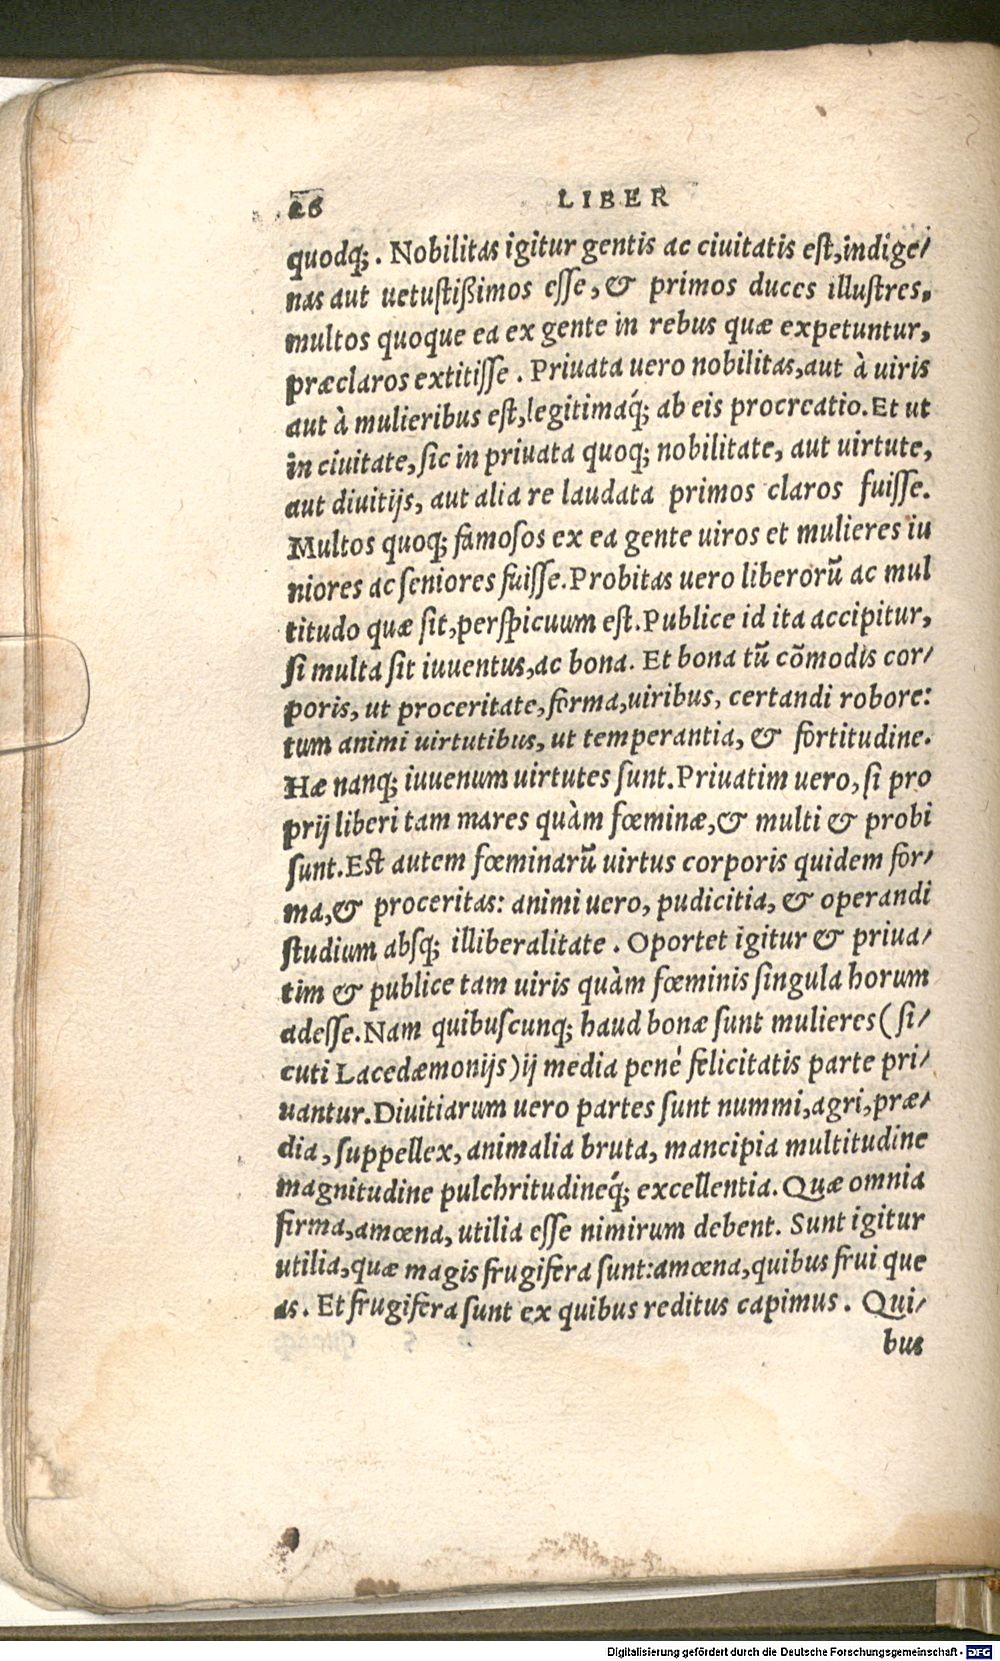 26 LIBER
quodq́;. Nobilitas igitur gentis ac ciuitatis est, indige/
nas aut uetustißimos esse, & primos duces illustres,
multos quoque ea ex gente in rebus quæ expetuntur,
præclaros extitisse. Priuata uero nobilitas, aut à uiris
aut à mulieribus est, legitimaq́; ab eis procreatio. Et ut
in ciuitate, sic in priuata quoq; nobilitate, aut uirtute,
aut diuitijs, aut alia re laudata primos claros fuisse.
Multos quoq; famosos ex ea gente uiros et mulieres iu
niores ac seniores fuisse. Probitas uero liberorũ ac mul
titudo quæ sit, perspicuum est. Publice id ita accipitur,
si multa sit iuuentus, ac bona. Et bona tũ cõmodis cor/
poris, ut proceritate, forma, uiribus, certandi robore:
tum animi uirtutibus, ut temperantia, & fortitudine.
Hæ nanq; iuuenum uirtutes sunt. Priuatim uero, si pro
prij liberi tam mares quàm fœminæ, & multi & probi
sunt. Est autem fœminarũ uirtus corporis quidem for/
ma, & proceritas: animi uero, pudicitia, & operandi
studium absq; illiberalitate. Oportet igitur & priua/
tim & publice tam uiris quàm fœminis singula horum
adesse. Nam quibuscunq; haud bonæ sunt mulieres (si/
cuti Lacedæmonijs) ij media pené felicitatis parte pri/
uantur. Diuitiarum uero partes sunt nummi, agri, præ/
dia, suppellex, animalia bruta, mancipia multitudine
magnitudine pulchritudineq́; excellentia. Quæ omnia
firma, amœna, utilia esse nimirum debent. Sunt igitur
utilia, quæ magis frugifera sunt: amœna, quibus frui que
as. Et frugifera sunt ex quibus reditus capimus. Qui/
bus
Digitalisierung gefördert durch die Deutsche Forschungsgemeinschaft - DFG